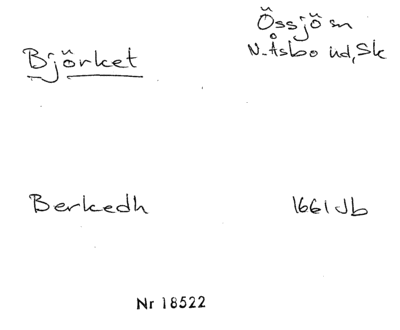 Björket
Össjö sn
N. Åsbo hd, Sk
Berkedh
1661 Jb
Nr 18522